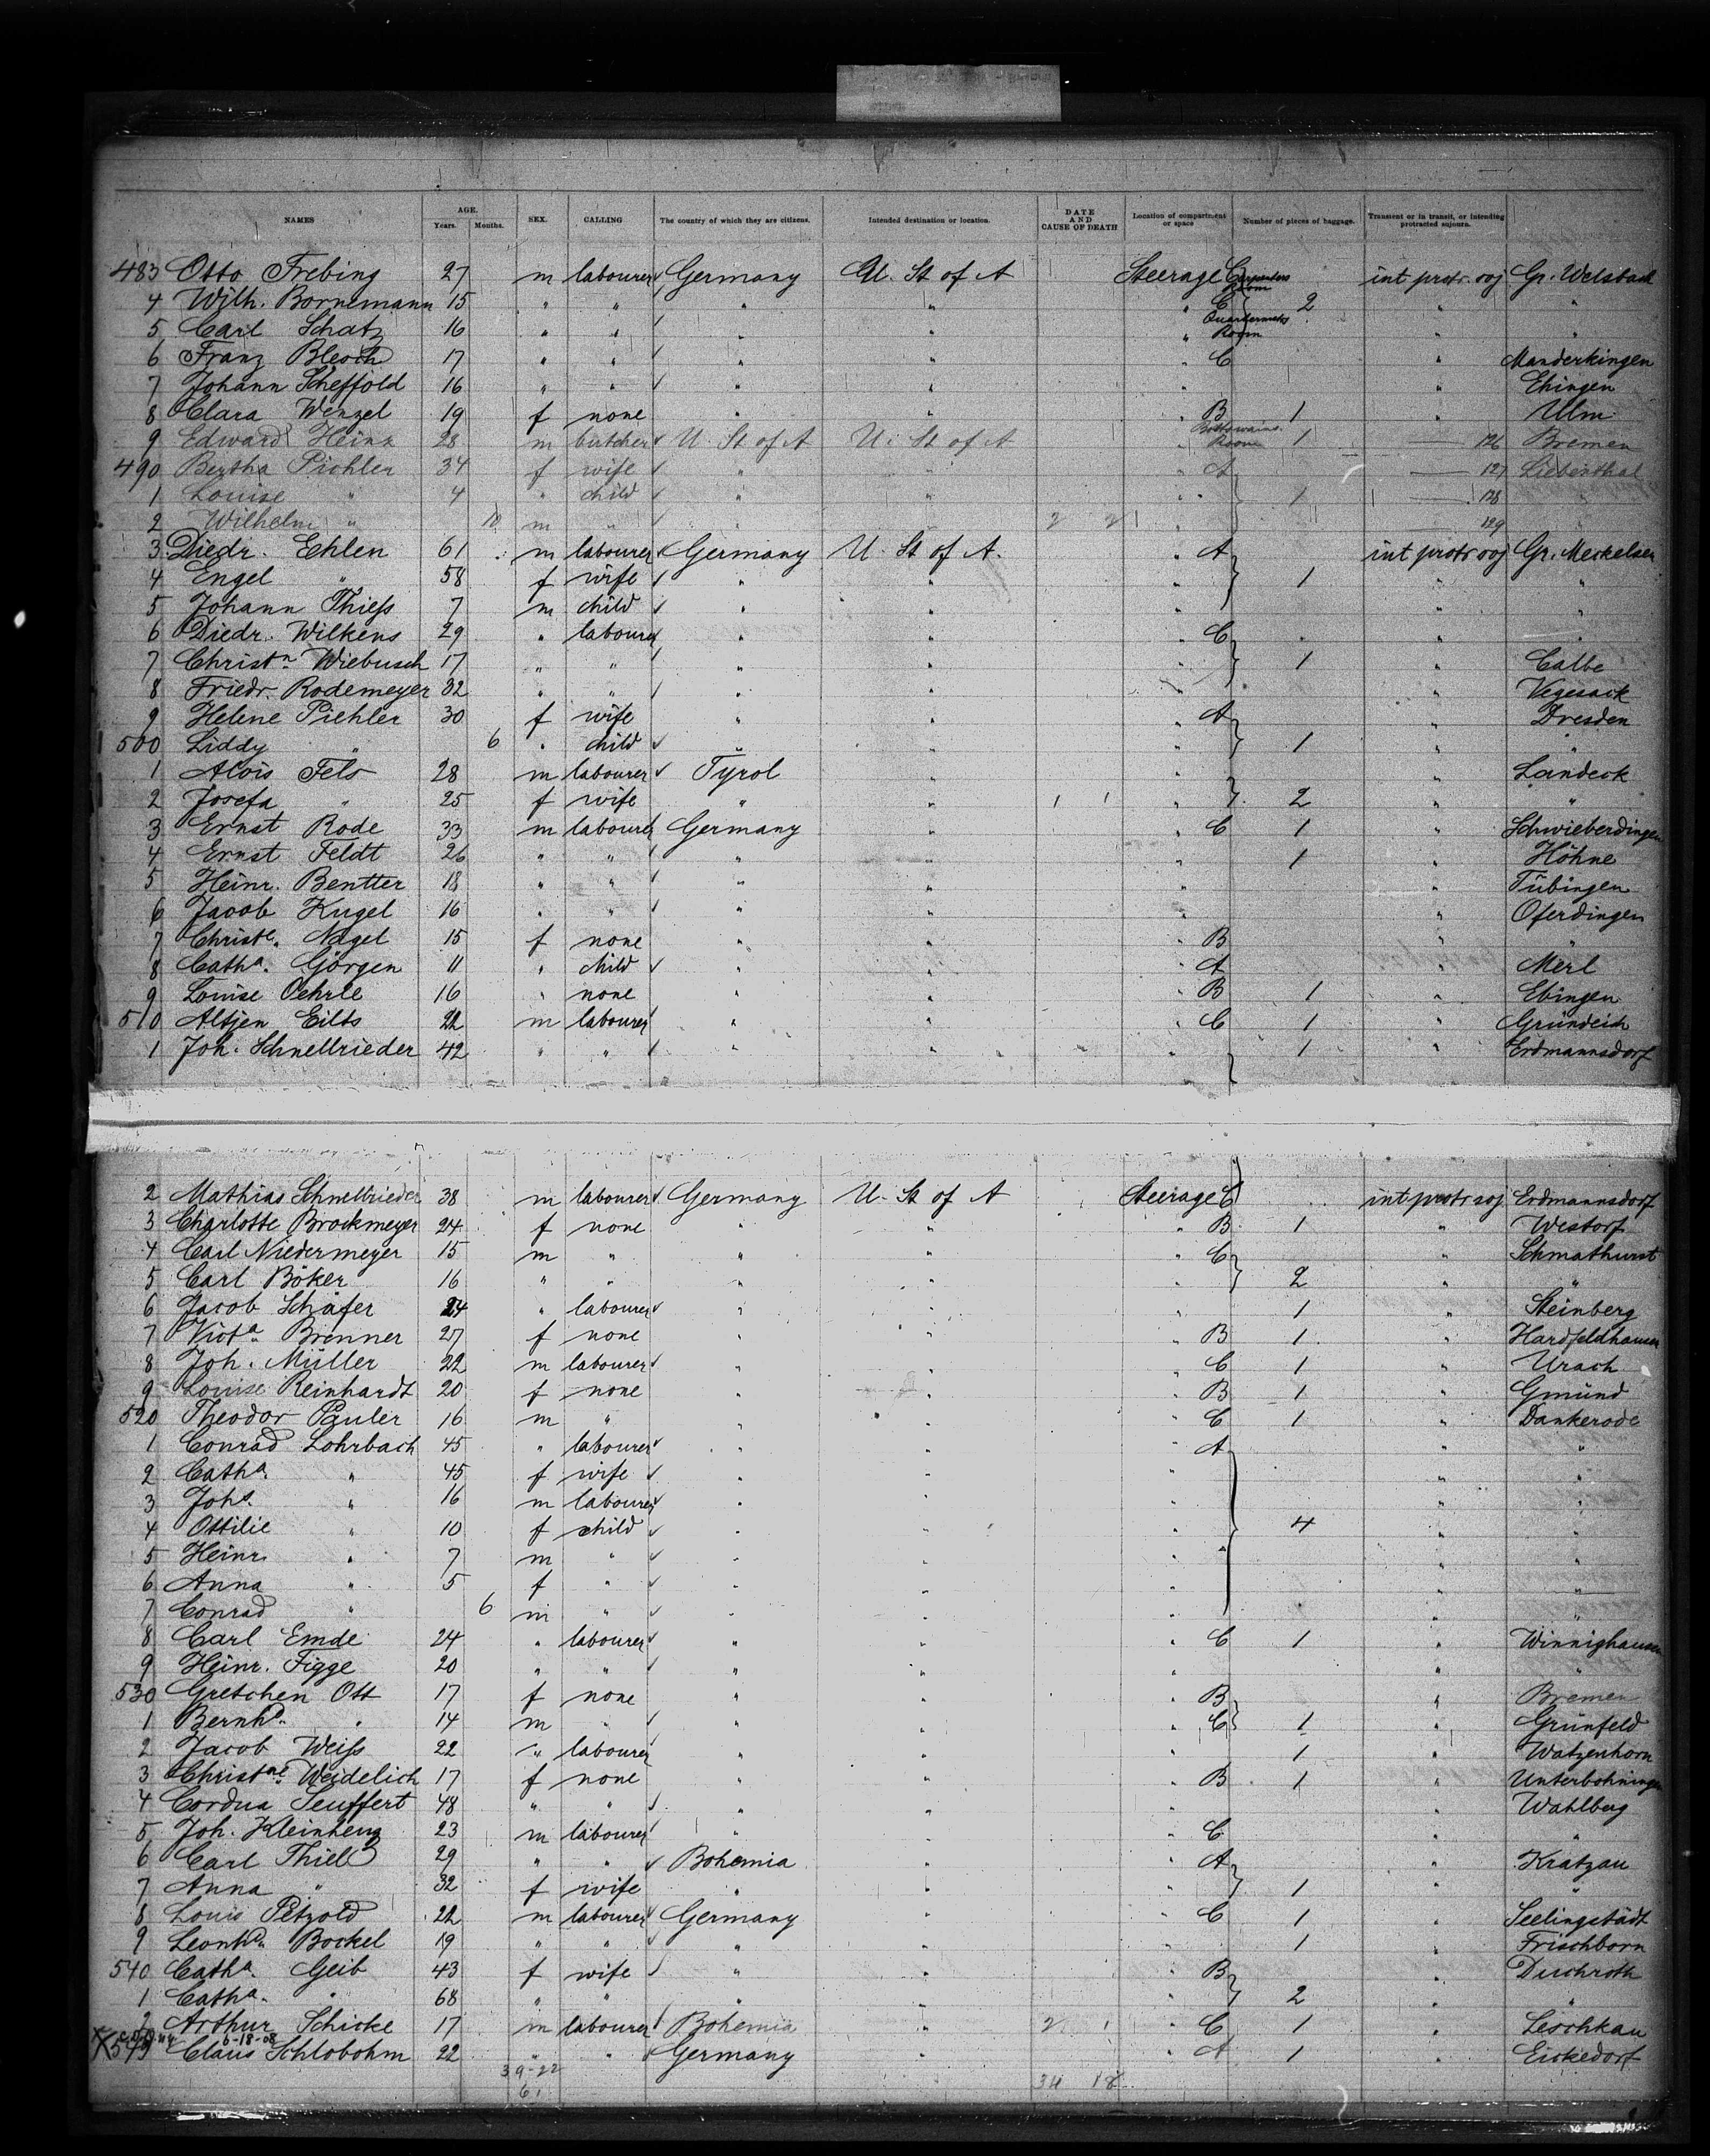 NAMES AGE. Years. Months. SEX. CALLING The country of which they are citizens. Intended destination or location. DATE AND CAUSE OF DEATH Location of compartment or space Number of pieces of baggage. Transient or in transit, or intending protracted sojourn.
483 Otto Frebing 27 m labourer Germany U. St of A Steerage C Carpenters Room int protr. soj Gr. Welsbach
4 Wilh. Bornemann 15 " " " " " C 2 " "
5 Carl Schatz 16 " " " " " Quartermstrs Room " "
6 Franz Bleoch 17 " " " " " C " Manderkingen
7 Johann Scheffold 16 " " " " " " Ehingen
8 Clara Wenzel 19 f none " " " B 1 " Ulm
9 Edward Heinz 28 m butcher U. St of A U. St of A " Boatswains Room 1 — 126 Bremen
490 Bertha Pichler 34 f wife " " " A — 127 Liebenthal
1 Louise " 4 " child " " " 1 — 128 "
2 Wilhelm " 10 m " " " 2 2 " — 129 "
3 Diedr. Ehlen 61 m labourer Germany U. St of A. " A int protr soj Gr. Meckelsen
4 Engel " 58 f wife " " " 1 " "
5 Johann Thieß 7 m child " " " " "
6 Diedr. Wilkens 29 " labourer " " " C " "
7 Christn. Wiebusch 17 " " " " " 1 " Calbe
8 Friedr. Rodemeyer 32 " " " " " " Vegesack
9 Helene Piehler 30 f wife " " " A " Dresden
500 Liddy " 6 " child " " " 1 " "
1 Alois Fels 28 m labourer Tyrol " " " Landeck
2 Josefa " 25 f wife " " 1 1 " 2 " "
3 Ernst Rode 33 m labourer Germany " " C 1 " Schwieberdingen
4 Ernst Feldt 26 " " " " " 1 " Höhne
5 Heinr. Bentter 18 " " " " " " Tübingen
6 Jacob Kugel 16 " " " " " " Oferdingen
7 Christe. Nagel 15 f none " " " B " "
8 Catha. Görgen 11 " child " " " A " Merl
9 Louise Oehrle 16 " none " " " B 1 " Ebingen
510 Altjen Eilts 22 m labourer " " " C 1 " Gründeich
1 Joh. Schnellrieder 42 " " " " " 1 " Erdmannsdorf
2 Mathias Schnellrieder 38 m labourer Germany U. St of A Steerage C int protr soj Erdmannsdorf
3 Charlotte Brockmeyer 24 f none " " " B 1 " Westorf
4 Carl Niedermeyer 15 m " " " " C " Schmathurst
5 Carl Böker 16 " " " " " 2 " "
6 Jacob Schäfer 24 " labourer " " " 1 " Steinberg
7 Victa. Brenner 27 f none " " " B 1 " Hardfeldhausen
8 Joh. Müller 22 m labourer " " " C 1 " Urach
9 Louise Reinhardt 20 f none " " " B 1 " Gmünd
520 Theodor Pauler 16 m " " " " C 1 " Dankerode
1 Conrad Lohrbach 45 " labourer " " " A " "
2 Catha. " 45 f wife " " " " "
3 Johs. " 16 m labourer " " " " "
4 Ottilie " 10 f child " " " 4 " "
5 Heinr. " 7 m " " " " " "
6 Anna " 5 f " " " " " "
7 Conrad " 6 m " " " " " "
8 Carl Emde 24 " labourer " " " C 1 " Winnighausen
9 Heinr. Figge 20 " " " " " " "
530 Gretchen Ott 17 f none " " " B " Bremen
1 Bernhd. " 14 m " " " " C 1 " Grünfeld
2 Jacob Weiß 22 " labourer " " " 1 " Watzenhorn
3 Christne. Weidelich 17 f none " " " B 1 " Unterbohningen
4 Cordua Seuffert 48 " " " " " " Wahlberg
5 Joh. Kleinhenz 23 m labourer " " " C " "
6 Carl Thiel 29 " " Bohemia " " A " Kratzau
7 Anna " 32 f wife " " " 1 " "
8 Louis Petzold 22 m labourer Germany " " C 1 " Seelingstädt
9 Leonhd. Bockel 19 " " " " " 1 " Frischborn
540 Catha. Geib 43 f wife " " " B " Duchroth
1 Catha. " 68 " " " " " 2 " "
2 Arthur Schicke 17 m labourer Bohemia " 2 1 " C 1 " Leschkau
6-18-08
X 543 Claus Schlobohm 22 " " Germany " " A 1 " Eickedorf
39-22 34 18
61